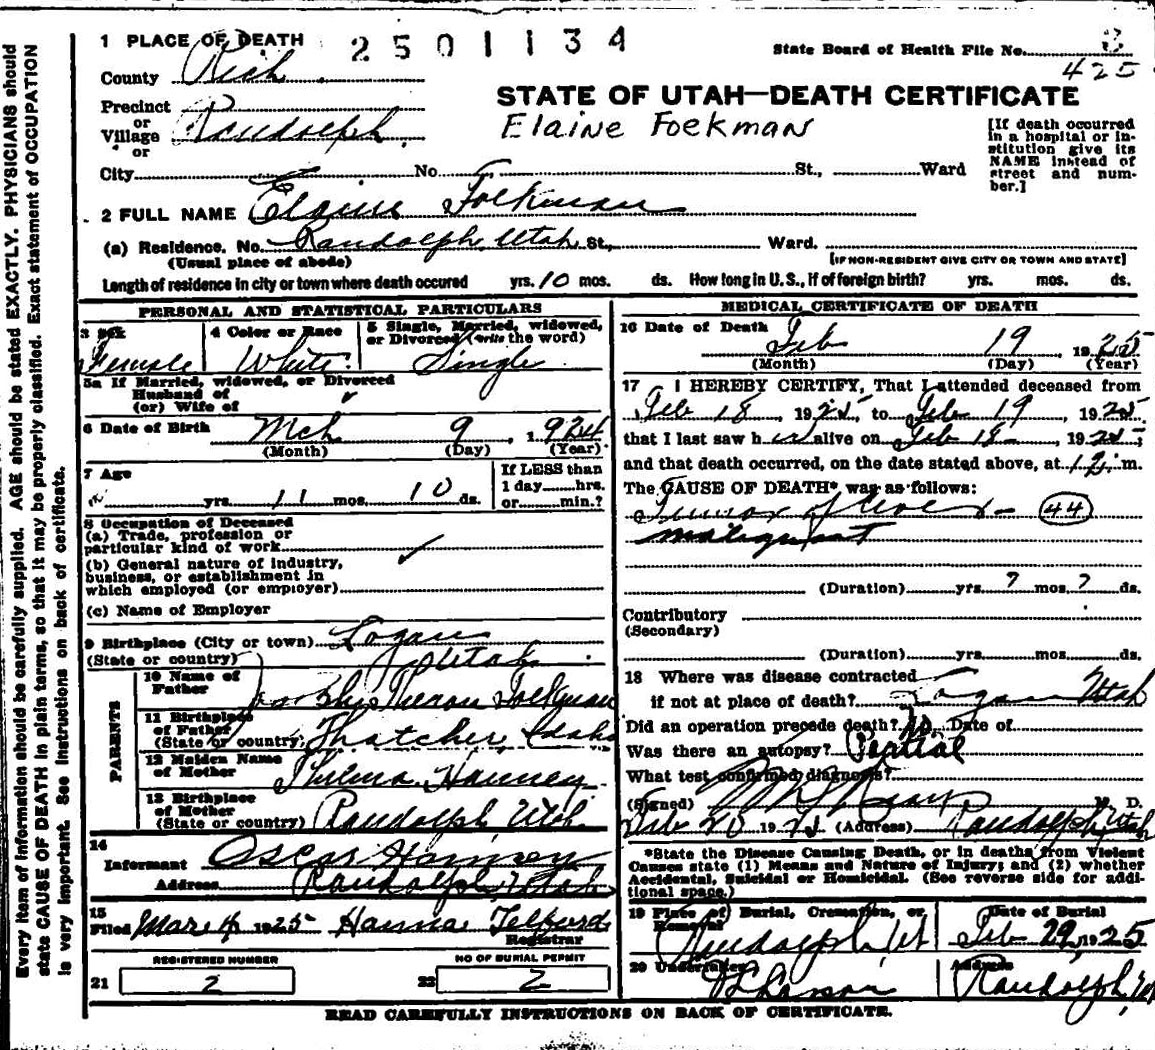 1 PLACE OF DEATH 2501134
State Board of Health File No. 3
425
County Rich
Precinct
or
Village Randolph
or
STATE OF UTAH—DEATH CERTIFICATE
Elaine Foekman
[If death occurred
in a hospital or in-
stitution give its
NAME instead of
street and num-
ber.]
City No. St., Ward
2 FULL NAME Elaine Folkman
(a) Residence. No. Randolph, Utah St., Ward.
(Usual place of abode) [IF NON-RESIDENT GIVE CITY OR TOWN AND STATE]
Length of residence in city or town where death occured yrs. 10 mos. ds. How long in U.S., if of foreign birth? yrs. mos. ds.
PERSONAL AND STATISTICAL PARTICULARS
3 Sex Female
4 Color or Race White
5 Single, Married, widowed,
or Divorced (write the word)
Single
5a If Married, widowed, or Divorced
Husband of
(or) Wife of
6 Date of Birth Mch 9, 1924
(Month) (Day) (Year)
7 Age
yrs. 11 mos. 10 ds.
If LESS than
1 day hrs.
or min.?
8 Occupation of Deceased
(a) Trade, profession or
particular kind of work
(b) General nature of industry,
business, or establishment in
which employed (or employer)
(c) Name of Employer
9 Birthplace (City or town) Logan
(State or country) Utah
PARENTS
10 Name of
Father Folkman
11 Birthplace
of Father
(State or country) Thatcher, Idaho
12 Maiden Name
of Mother Thelma Hanney
13 Birthplace
of Mother
(State or country) Randolph, Utah
14
Informant Oscar Hanney
Address Randolph, Utah
15
Filed Mar 4 1925 Hanna Telford
Registrar
REGISTERED NUMBER
21 2
NO OF BURIAL PERMIT
22 2
MEDICAL CERTIFICATE OF DEATH
16 Date of Death
Feb 19 1925
(Month) (Day) (Year)
17 I HEREBY CERTIFY, That I attended deceased from
Feb 18, 1925 to Feb 19, 1925
that I last saw her alive on Feb 18, 1925;
and that death occurred, on the date stated above, at 12 m.
The CAUSE OF DEATH* was as follows:
Tumor of Liver 44
malignant
(Duration) yrs. ? mos. ? ds.
Contributory
(Secondary)
(Duration) yrs. mos. ds.
18 Where was disease contracted
if not at place of death? Logan Utah
Did an operation precede death? No. Date of
Was there an autopsy? Partial
What test confirmed diagnosis?
(Signed) M. D.
Feb 20 1925 (Address) Randolph, Utah
*State the Disease Causing Death, or in deaths from Violent
Causes state (1) Means and Nature of Injury; and (2) whether
Accidental, Suicidal or Homicidal. (See reverse side for addi-
tional space.)
19 Place of Burial, Cremation, or
Removal
Randolph, Ut
Date of Burial
Feb 22, 1925
20 Undertaker
Address
Randolph, Ut
READ CAREFULLY INSTRUCTIONS ON BACK OF CERTIFICATE.
Every item of information should be carefully supplied. AGE should be stated EXACTLY. PHYSICIANS should
state CAUSE OF DEATH in plain terms, so that it may be properly classified. Exact statement of OCCUPATION
is very important. See instructions on back of certificate.